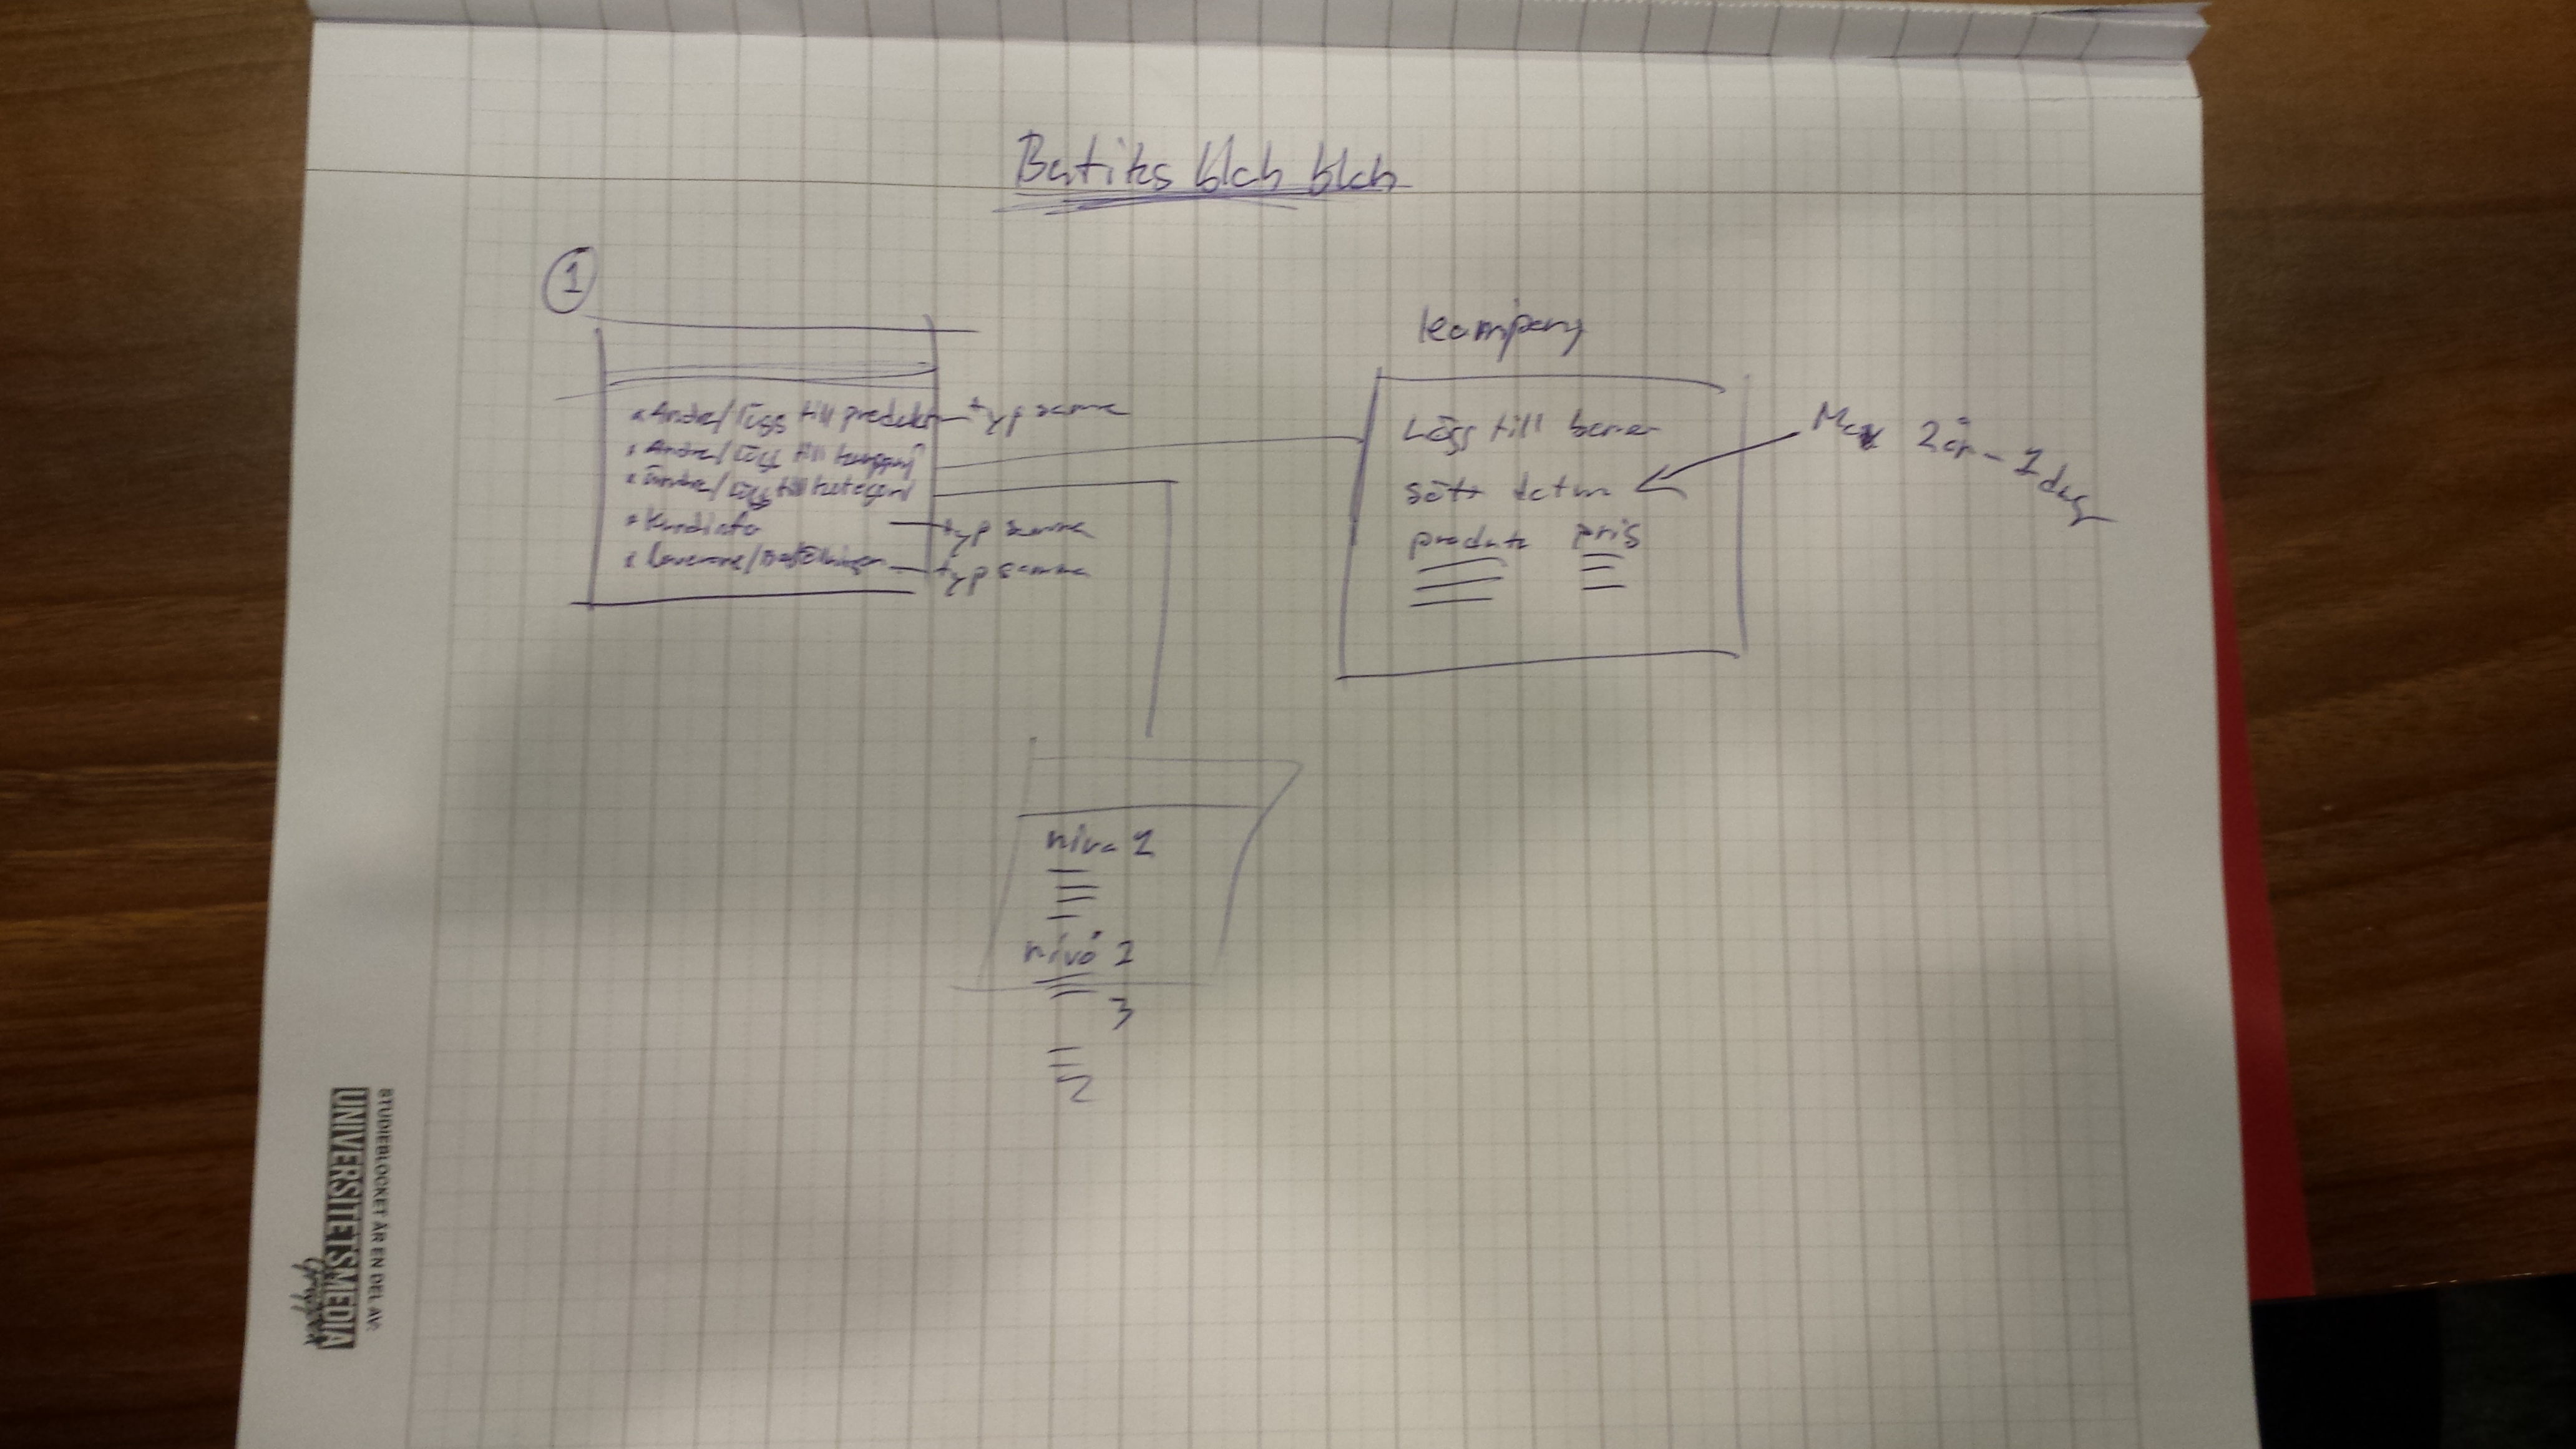 Butiks blah blah
1
Kampanj
Ändra/lägg till produkt typ samma
Ändra/lägg till kampanj
Ändra/lägg till kategori
Kundinfo typ samma
typ samma
Lägg till baner
sätt datum
produkt pris
Max 2 år - 1 dag
nivå 1
nivå 2
3
STUDIEBLOCKET ÄR EN DEL AV:
UNIVERSITETSMEDIA
Gruppen